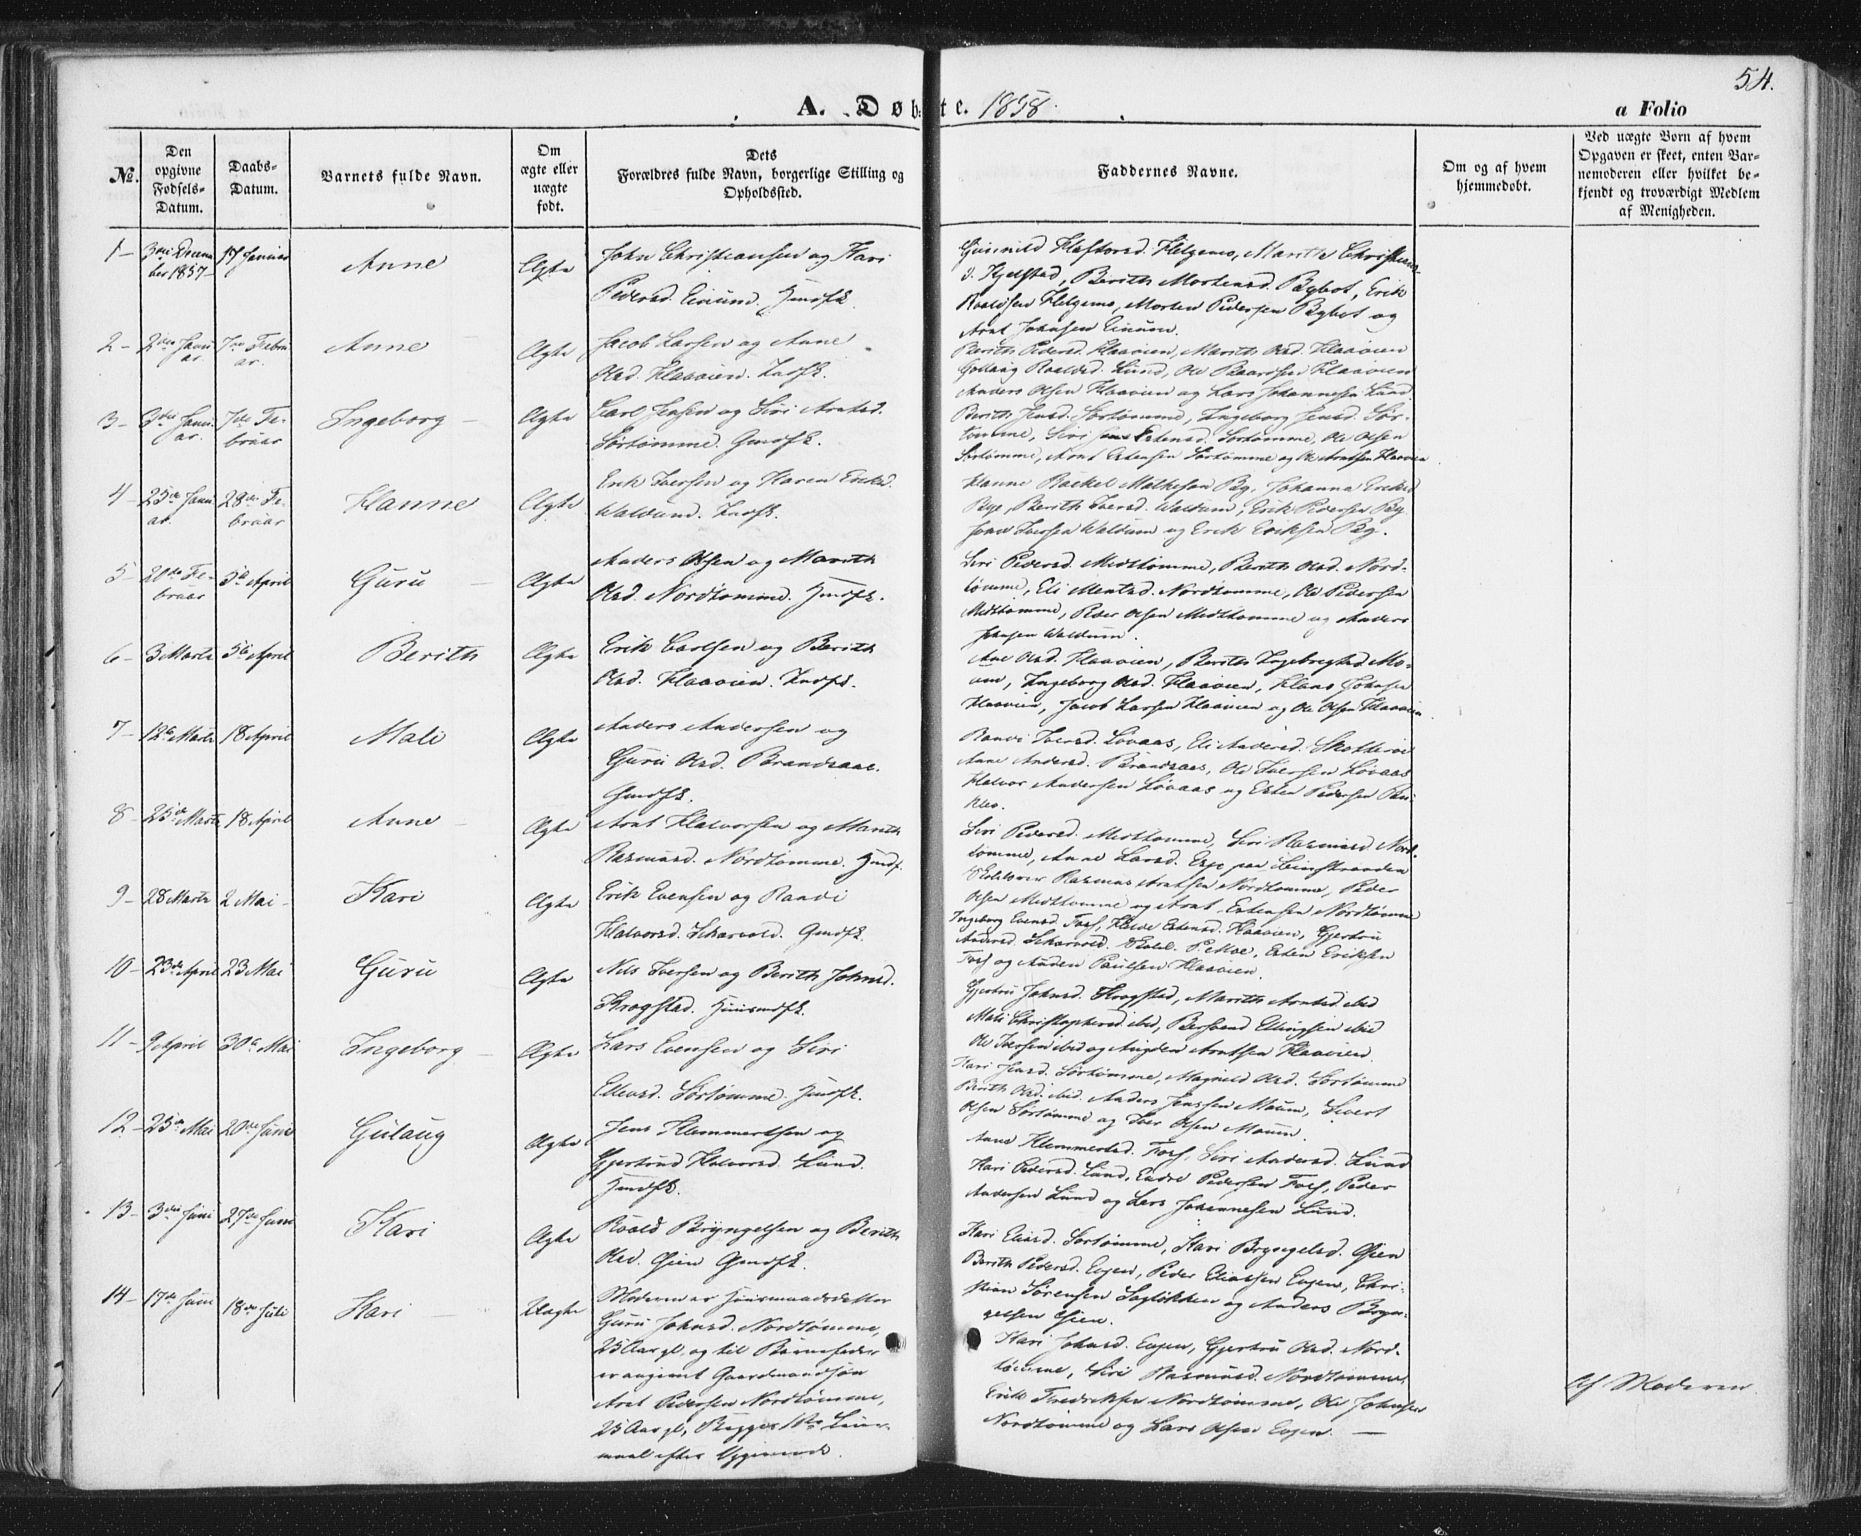 54.
A. Døbte. 1858.
a Folio
No.
Den opgivne Fødsels-Datum.
Daabs-Datum.
Barnets fulde Navn.
Om ægte eller uægte født.
Dets Forældres fulde Navn, borgerlige Stilling og Opholdssted.
Faddernes Navne.
Om og af hvem hjemmedøbt.
Ved uægte Børn af hvem Opgaven er skeet, enten Barnemoderen eller hvilket bekjendt og troværdigt Medlem af Menigheden.
1 - 3die December 1857 - 17 Januar Anne Ægte
John Christiansen og Kari
Pedersd. Einum.
Gunnild Hafstorsd. Helgemo, Marith Christians
d. Kjelstad, Berith Mortensd. Bybot, Erik
Roaldsen Helgemo, Morten Pedersen Bybot og
Arnt Johnsen Einum.
2 - 2den Januar. 7de Februar. Anne Ægte
Jacob Larsen og Anne
Olsd. Haaøien.
Berith Pedersd. Haaøien, Marith Olsd. Haaøien
Roaldsd. Lund, Ole Haaøien
Anders Olsen Haaøien og Lars Johannesen Lund.
3 - 3die Januar. 7de Februar Ingeborg - Ægte
Carl Jensen og Siri Arntsd.
Sørtømme. Gmdfk.
Berith Jensd. Sørtømme, Ingeborg Jensd. Sør-
tømme, Siri Estensd. Sørtømme, Ole Olsen
Sørtømme, Arnt Estensen Sørtømme og Ole Arntsen Haaøien
4 - 25de Januar. 28de Februar Hanne Ægte
Erik Iversen og Karen Eriksd.
Waldum.
Hanne Rackel Matheson By, Johanna Eriksd
Bye, Berith Iversd. Waldum, Erik Pedersen By
Iversen Waldum og Erik Eriksen By.
5 - 20de Februar 5te April Guru - Ægte
Anders Olsen og Marith
Olsd. Nordtømme. Hmdfk.
Siri Pedersd. Midttømme, Berith Olsd. Nord-
tømme, Eli Nordtømme, Ole Pedersen
Midttømme, Peder Olsen Midttømme og Anders
Johnsen Waldum.
6 - 3 Marts 5te April Berith Ægte
Erik Carlsen og Berith
Olsd. Haaøien.
Ane Olsd. Haaøien, Berith Ingebrigtsd Mo-
um, Ingeborg Olsd. Haaøien, Hans Johnsen
Haaøien, Jacob Larsen Haaøien og Ole Olsen Haaøien
7 - 12te Marts 18 April Mali Ægte
Anders Andersen og
Guru Olsd. Brandsaas.
Gmdfk.
Randi Iversd. Løvaas, Eli Andersd.
Anne Andersd. Brandsaas, Ole Iversen Løvaas
Halvor Andersen Løvaas og Esten Pedersen
8 - 25de Marts 18 April Anne - Ægte
Arnt Halvorsen og Marith
Rasmusd. Nordtømme. Hmdf.
Siri Pedersd. Midttømme, Siri Rasmusd. Nord-
tømme, Anne Larsd. Esp paa Leinstranden
Rasmus Arntsen Nordtømme, Peder
Olsen Midttømme og Arnt Estensen Nordtømme
9 - 28 Marts 2 Mai - Kari Ægte
Erik Evensen og Randi
Halvorsd. Skarvold. Gmdfk.
Ingeborg Evensd. Fosf, Estensd. Haaøien, Gjertru
Andersd. Skarvold. Esten Eriksen
Fosf og Paulsen Haaøien.
10 - 23de April 23 Mai Guru Ægte
Nils Iversen og Berith Johnsd.
Krogstad. Huusmdfk.
Gjertru Johnsd. Krogstad, Marith Arntsd ibid
Mali Christophersd ibid, Bersvend Ellingsen ibid
Ole Iversen ibid og Arntsen Haaøien.
11 - 9 April 30te Mai Ingeborg - Ægte
Lars Evensen og Siri
Ellevsd. Sørtømme. Hmdfk.
Kari Jensd. Sørtømme, Magnild Olsd. Sørtømme
Berith Olsd. ibid. Anders Jenssen Moum, Sivert
Olsen Sørtømme og Iver Olsen Moum.
12 - 25de Mai 20de Juni Gulaug Ægte
Jens Klemmetsen og
Gjertrud Halvorsd. Lund.
Hmdfk.
Anne Klemmetsd. Fosf, Siri Andersd. Lund
Kari Pedersd. Lund, Endre Pedersen Fosf, Peder
Andersen Lund og Lars Johannesen Lund.
13 - 3die Juni 27de Juni Kari Ægte
Roald Bryngelsen og Berith
Olsd. Øien Gmdfk.
Kari Eliasd. Sørtømme, Kari Bryngelsd. Øien
Berith Pedersd. Engen, Peder Eliassen Engen, Chri-
stian Sørensen Sagløkken og Anders Bryn-
gelsen Øien.
14 - 17de Juni 18de Juli Kari - Uægte
Moderen er Huusmandsdatter
Guru Johnsd. Nordtømme,
25 Aar gl. og til Barnefader
er angivet Gaardmandssøn
Arnt Pedersen Nordtømme,
25 Aar gl, Begges 1ste Leier-
maal efter Opgivende.
Kari Johnsd. Engen, Gjertru Olsd. Nord-
tømme, Siri Rasmusd. Nordtømme,
Erik Fredriksen Nordtømme, Ole Johnsen
Nordtømme og Lars Olsen Engen. -
Af Moderen.